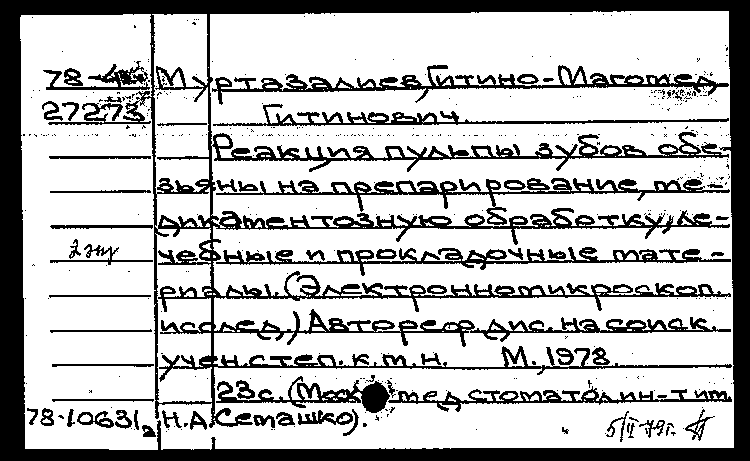 78-4 Муртазалиев, Гитино-Магомед
27273 Гитинович.
Реакция пульпы зубов обе-
зьяны на препарирование, ме-
дикаментозную обработку, ле-
2 экз чебные и прокладочные мате-
риалы. (Электронномикроскоп.
исслед.) Автореф. дис. на соиск.
учен. степ. к.м.н. М., 1978.
23 с. (Моск мед. стоматол. ин-т им.
78-10631а Н.А. Семашко).
5/V 79г.